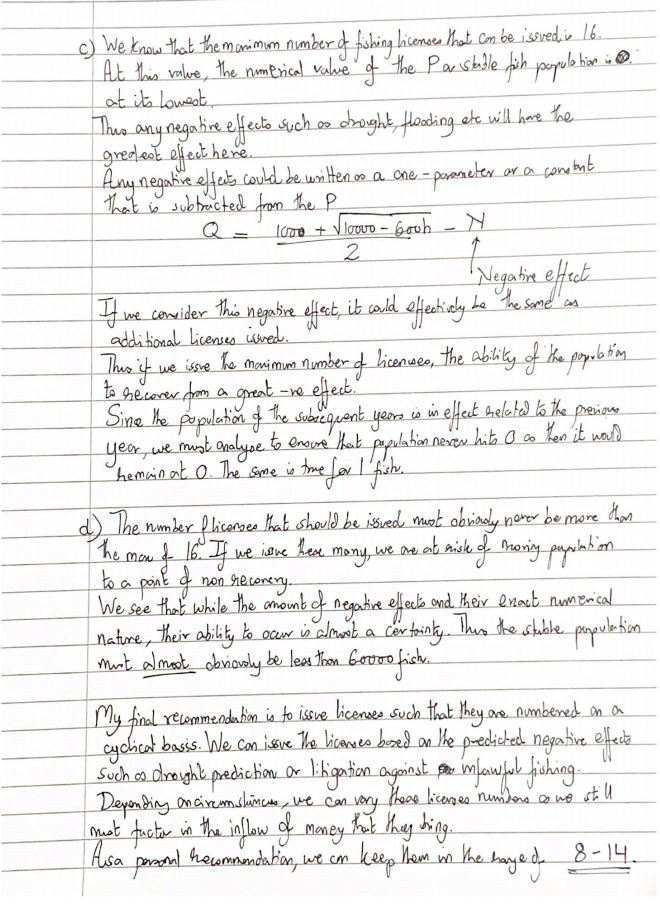 c) We know that the maximum number of fishing licenses that can be issued is 16.
At this value, the numerical value of the P or stable fish population is
at its lowest.
Thus any negative effects such as drought, flooding etc will have the
greatest effect here.
Any negative effects could be written as a one-parameter or a constant
that is subtracted from the P
Q = 1000 + √10000 - 600h / 2 - N
Negative effect
If we consider this negative effect, it could effectively be the same as
additional licenses issued.
Thus if we issue the maximum number of licenses, the ability of the population
to recover from a great -ve effect.
Since the population of the subsequent years is in effect related to the previous
year, we must analyse to ensure that population never hits 0 as then it would
remain at 0. The same is true for 1 fish.
d) The number of licenses that should be issued must obviously never be more than
the max of 16. If we issue these many, we are at risk of moving population
to a point of non recovery.
We see that while the amount of negative effects and their exact numerical
nature, their ability to occur is almost a certainty. Thus the stable population
must almost obviously be less than 60000 fish.
My final recommendation is to issue licenses such that they are numbered on a
cyclical basis. We can issue the licenses based on the predicted negative effects
such as drought prediction or litigation against unlawful fishing.
Depending on circumstances, we can vary these licenses numbers as we still
must factor in the inflow of money that they bring.
As a personal recommendation, we can keep them in the range of 8 - 14.